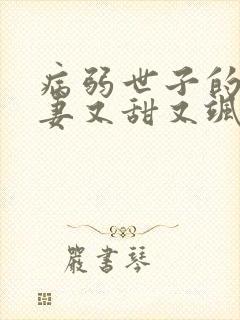 病弱世子的
妻又甜又飒
嚴書琴